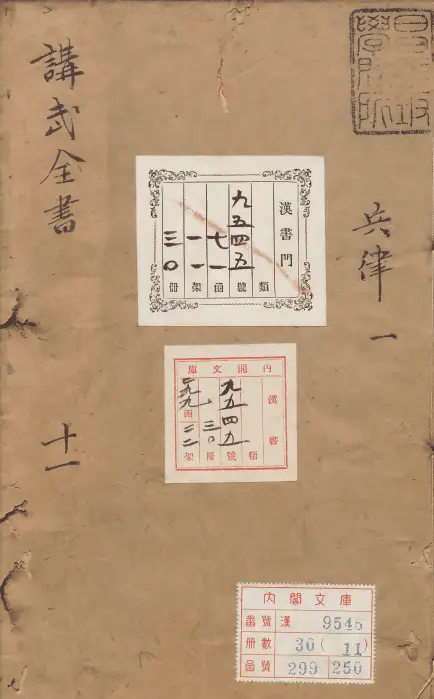 昌平坂
學問所
兵律 一
講武全書 十一
漢書門
類
九五四五號
七一函
一一架
三〇冊
內閣文庫
漢書
類
九五四五號
三〇冊
函
架
內閣文庫
番號 漢 9545
冊數 30 (11)
函號 299 250